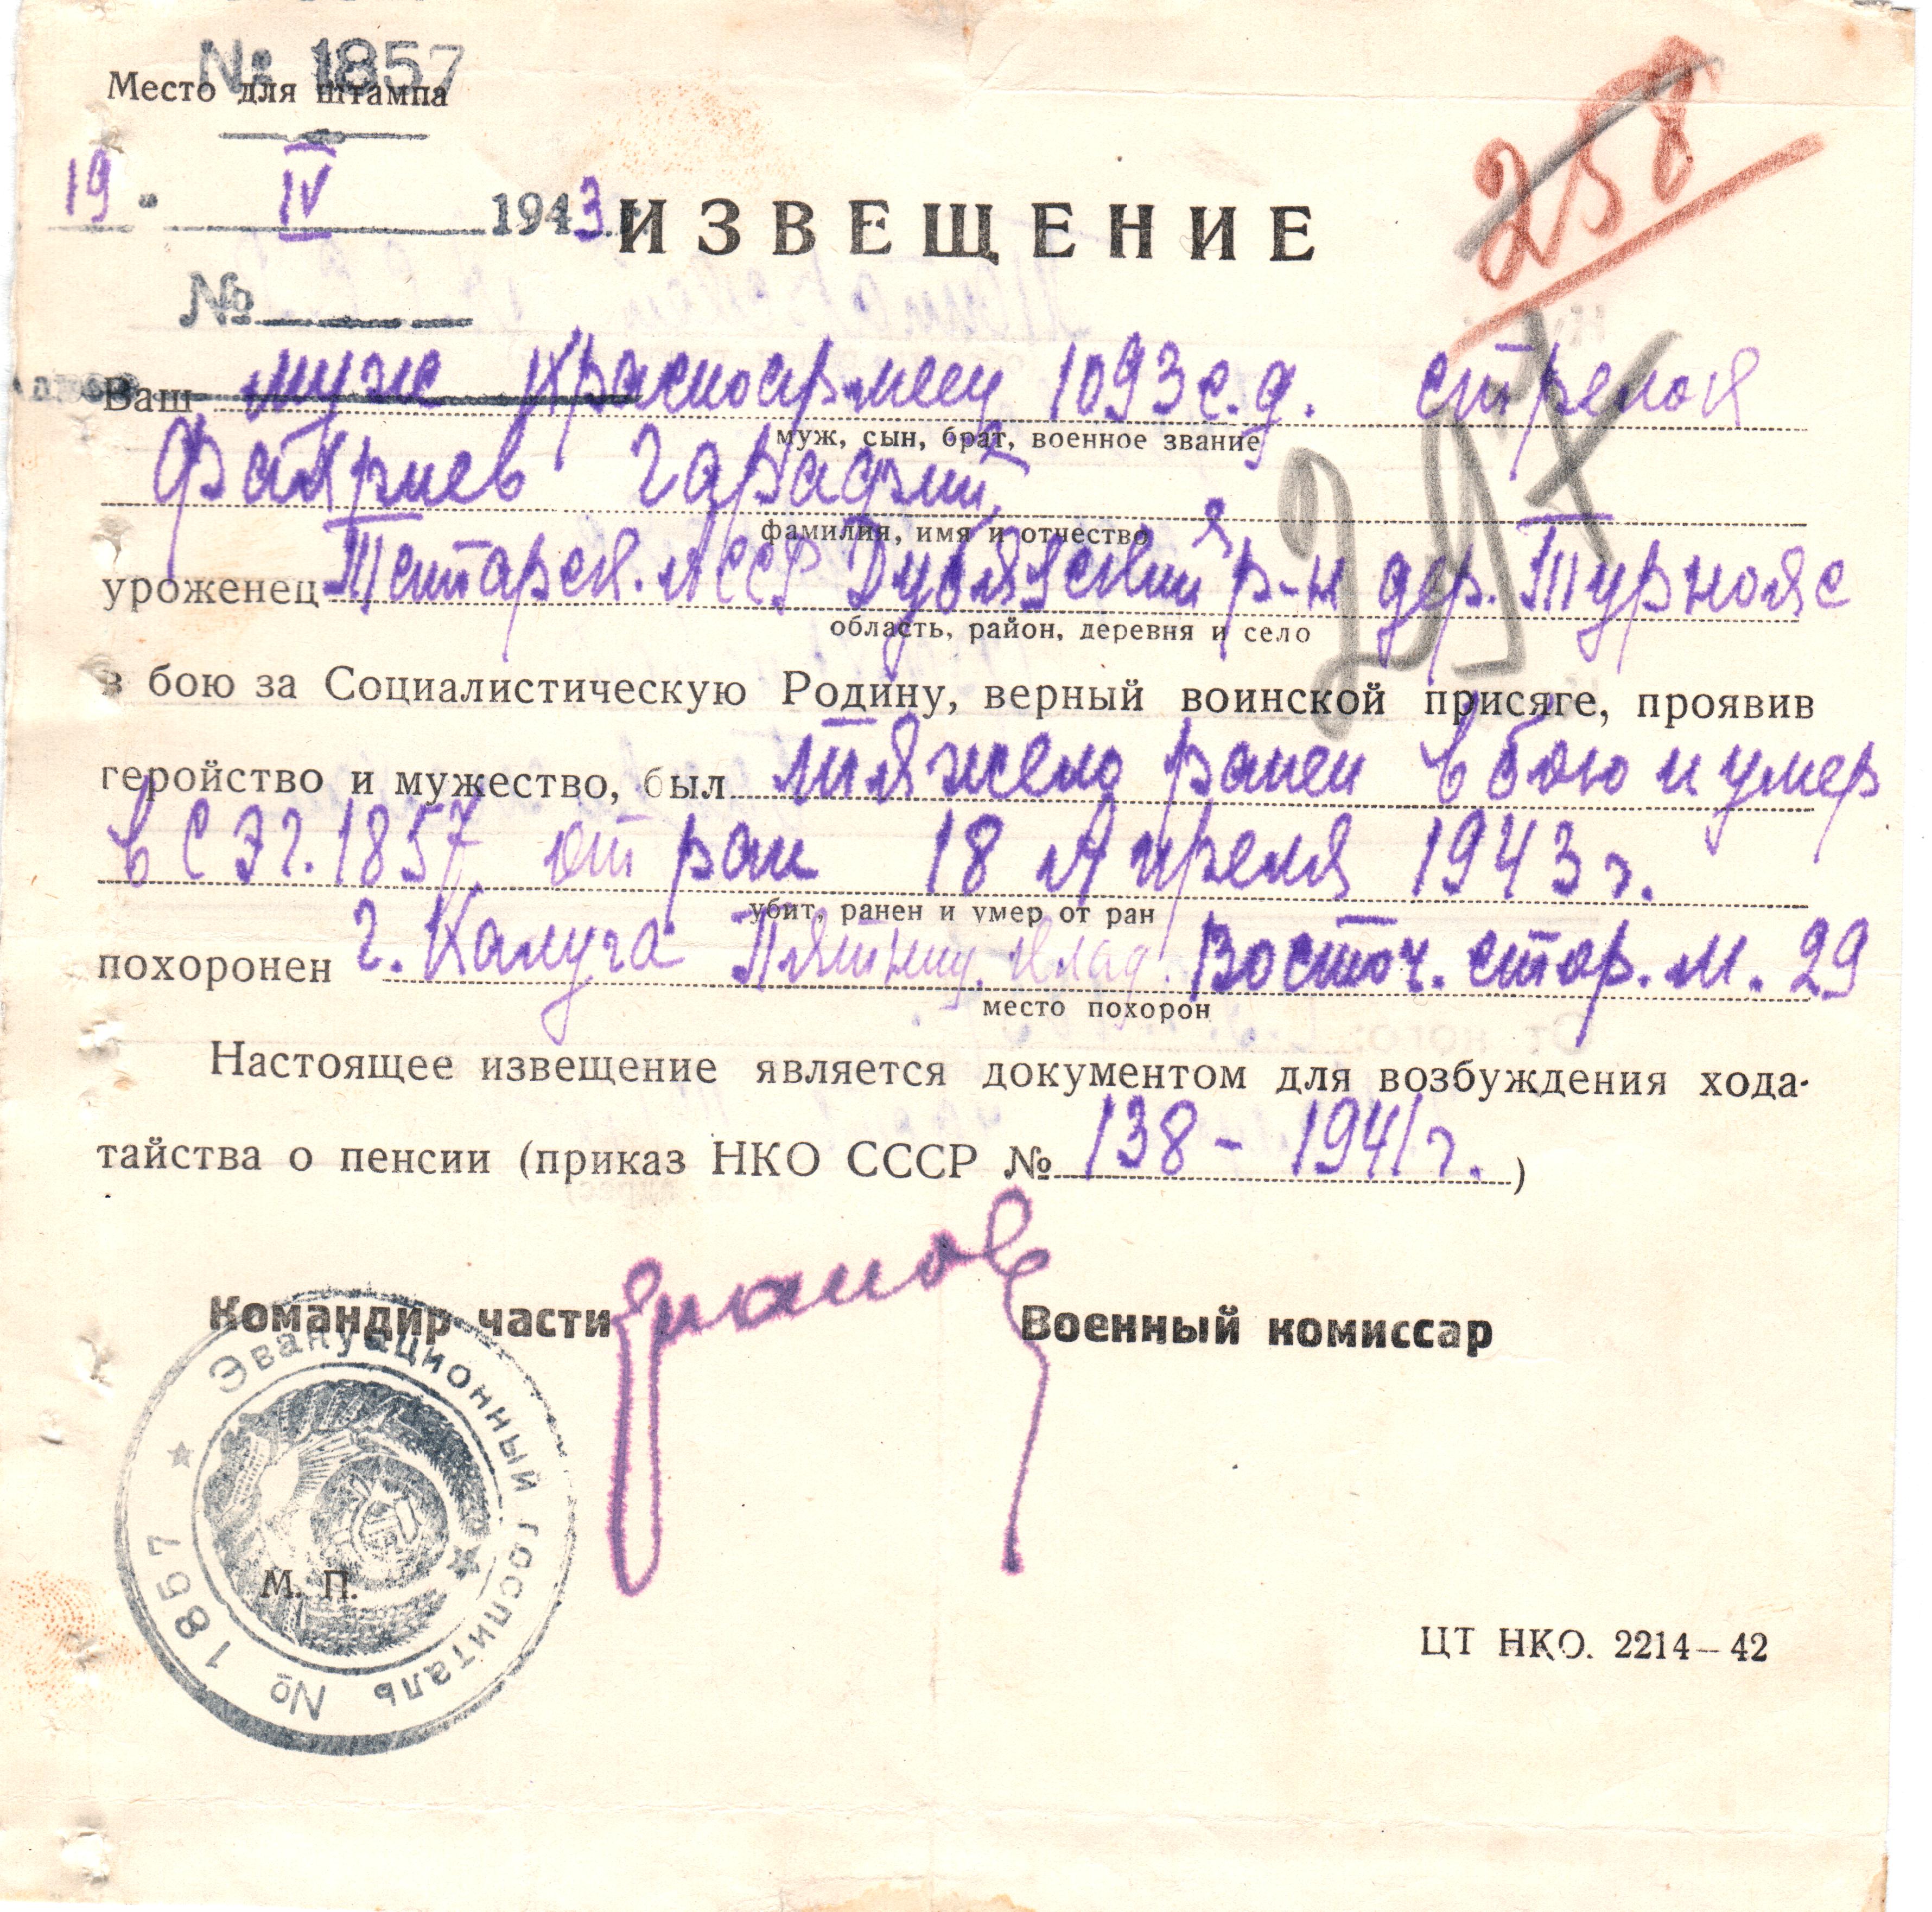 № 1857
Место для штампа
19 " IV 1943
ИЗВЕЩЕНИЕ
258
№
Ваш муж Красноармеец 1093 с.д. стрелок
муж, сын, брат, военное звание
Фахриев Гарафий
фамилия, имя и отчество
уроженец Татарск. АССР Дубъязский р-н дер. Турнояс
область, район, деревня и село
в бою за Социалистическую Родину, верный воинской присяге, проявив
геройство и мужество, был тяжело ранен в бою и умер
в СЭГ. 1857 от ран 18 Апреля 1943 г.
убит, ранен и умер от ран
похоронен г. Калуга Пятниц. клад. Восточ. стор. м. 29
место похорон
Настоящее извещение является документом для возбуждения хода-
тайства о пенсии (приказ НКО СССР № 138 - 1941 г.)
Командир части
Военный комиссар
Эвакуационный госпиталь № 1857
М. П.
ЦТ НКО. 2214—42